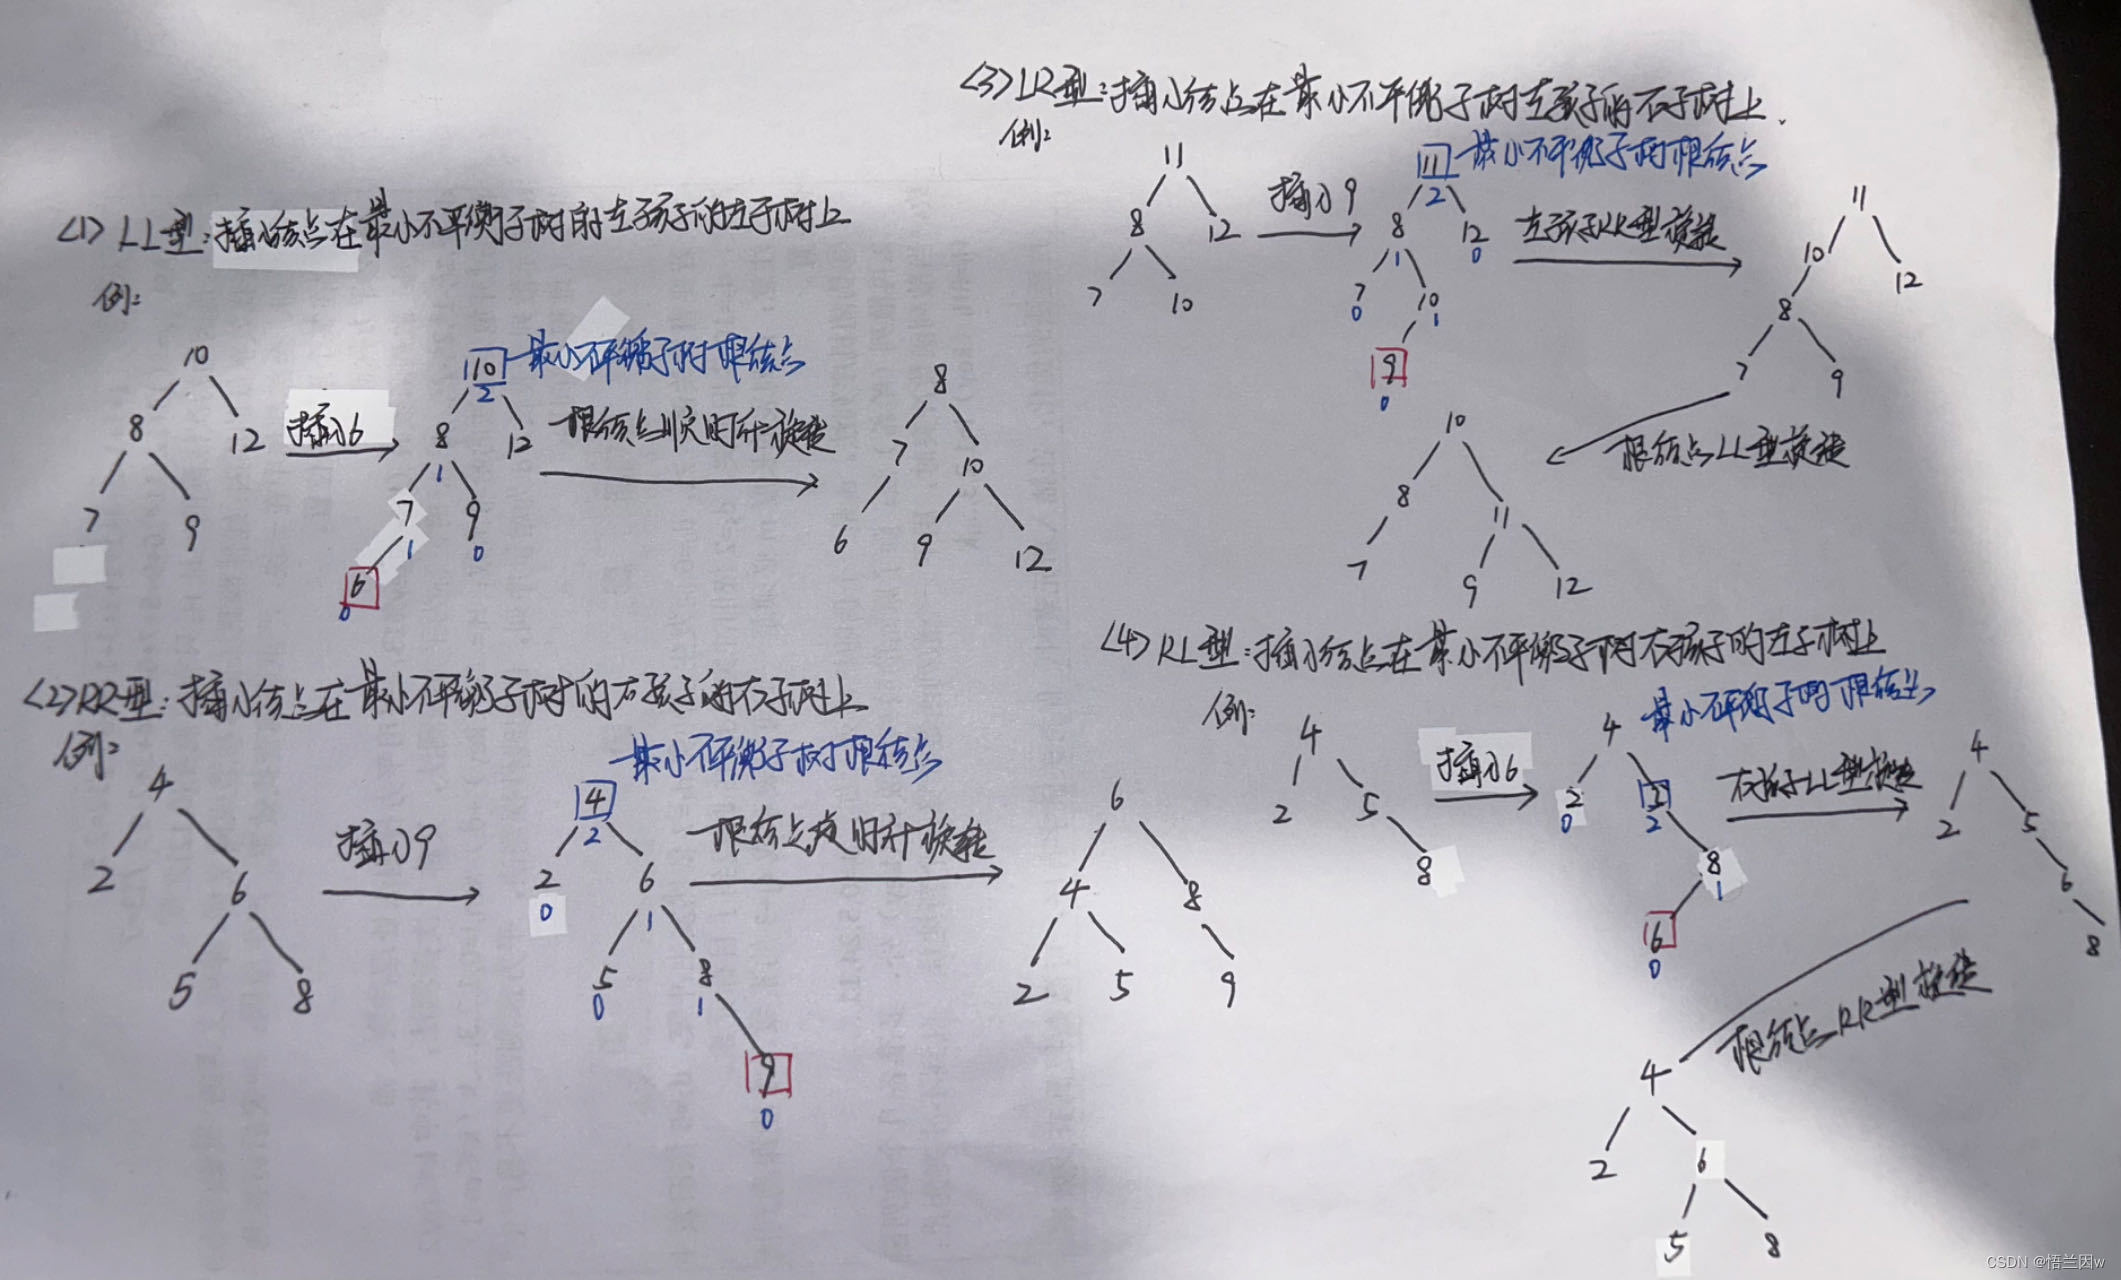 <1> LL型:插入结点在最小不平衡子树的左孩子的左子树上
例:
10
8 12
7 9
插入6
10 最小不平衡子树根结点
2
8 12
1
7 9
1 0
6
0
根结点顺时针旋转
8
7 10
6 9 12
<2> RR型:插入结点在最小不平衡子树的右孩子的右子树上
例:
4
2 6
5 8
插入9
最小不平衡子树根结点
4
2
2 6
0 1
5 8
0 1
9
0
根结点逆时针旋转
6
4 8
2 5 9
<3> LR型:插入结点在最小不平衡子树左孩子的右子树上.
例:
11
8 12
7 10
插入9
11 最小不平衡子树根结点
2
8 12
1 0
7 10
0 1
9
0
左孩子RR型旋转
11
10 12
8
7 9
根结点LL型旋转
10
8 11
7 9 12
<4> RL型:插入结点在最小不平衡子树右孩子的左子树上
例:
4
2 5
8
插入6
最小不平衡子树根结点
4
2
0 2
8
1
6
0
右孩子LL型旋转
4
2 5
6
8
根结点RR型旋转
4
2 6
5 8
CSDN @悟兰因w